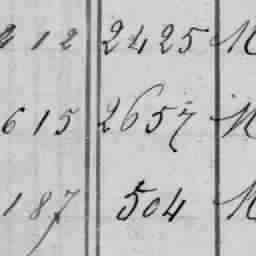 212 2425 M
615 2657 M
187 504 M